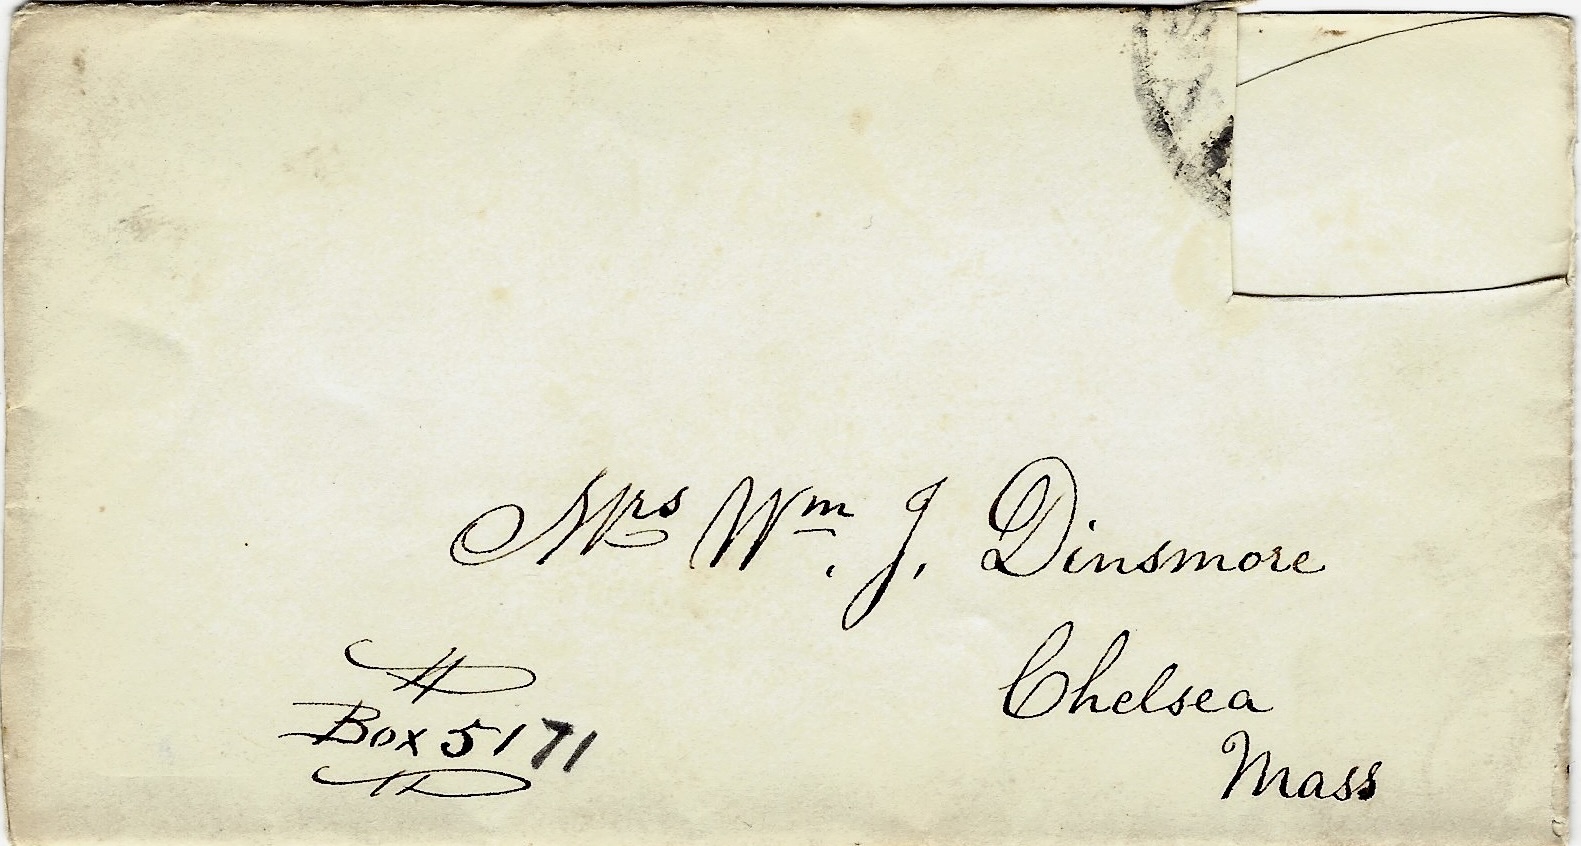 Mrs Wm. J. Dinsmore
Chelsea
Mass
Box 5171